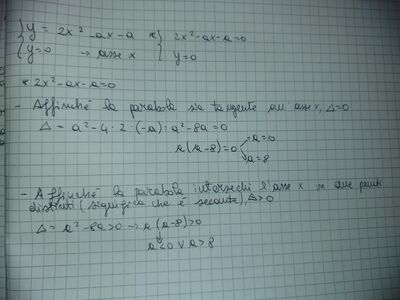 { y = 2x² - ax - a * { 2x² - ax - a = 0
{ y = 0 → asse x { y = 0
* 2x² - ax - a = 0
- Affinché la parabola sia tangente all'asse x, Δ=0
Δ = a² - 4 · 2 · (-a) = a² - 8a = 0
a(a-8) = 0 → a = 0
→ a = 8
- Affinché la parabola intersechi l'asse x in due punti
distinti (significa che è secante), Δ > 0
Δ = a² - 8a > 0 → a(a-8) > 0
a < 0 ∨ a > 8